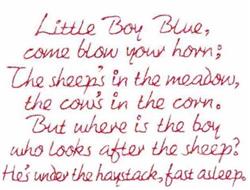 Little Boy Blue,
come blow your horn;
The sheep's in the meadow,
the cow's in the corn.
But where is the boy
who looks after the sheep?
He's under the haystack, fast asleep.